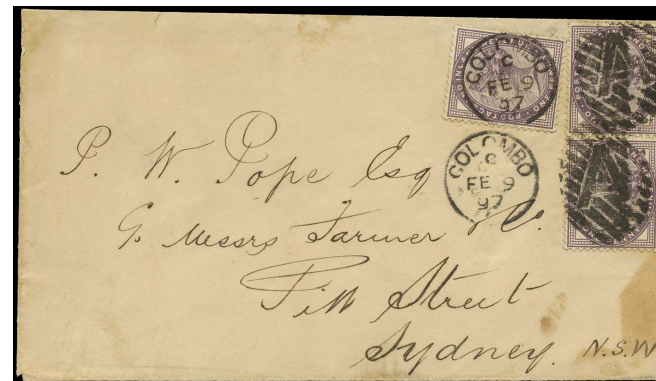 COLOMBO
C
FE 9
97
COLOMBO
C
FE 9
97
P. W. Pope Esq
Messrs Farmer & Co.
Pitt Street
Sydney. N.S.W